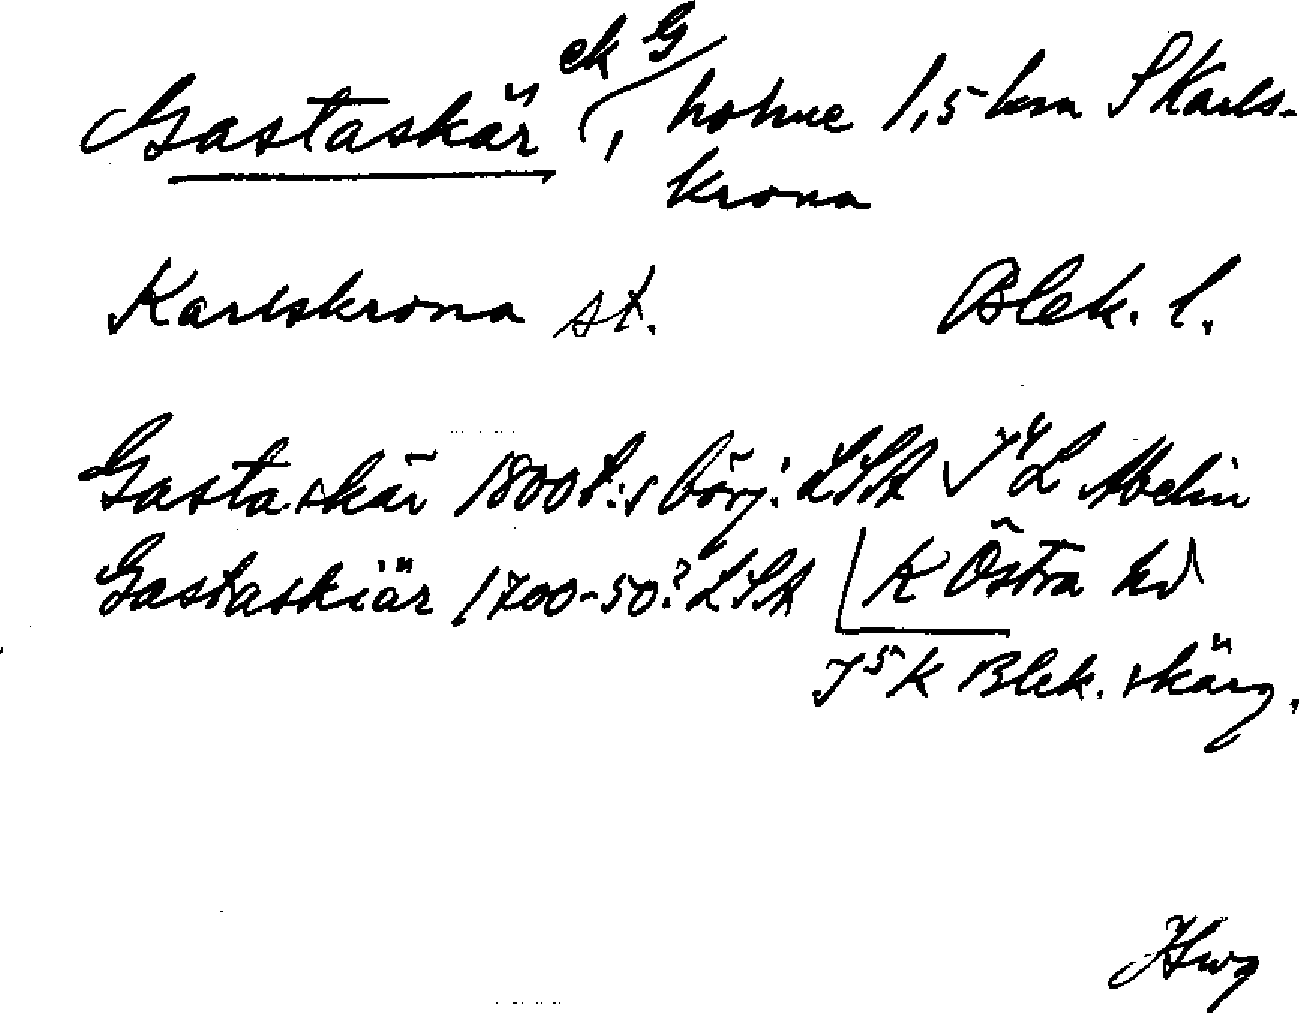 ek G
Gastaskär, holme 1,5 km S Karls-
krona
Karlskrona st. Blek. l.
Gastaskär 1800 t:s börj. LSA J4 L Melin
Gastaskiär 1700-50? LSA K Östra hd
J5 K Blek. skärg.